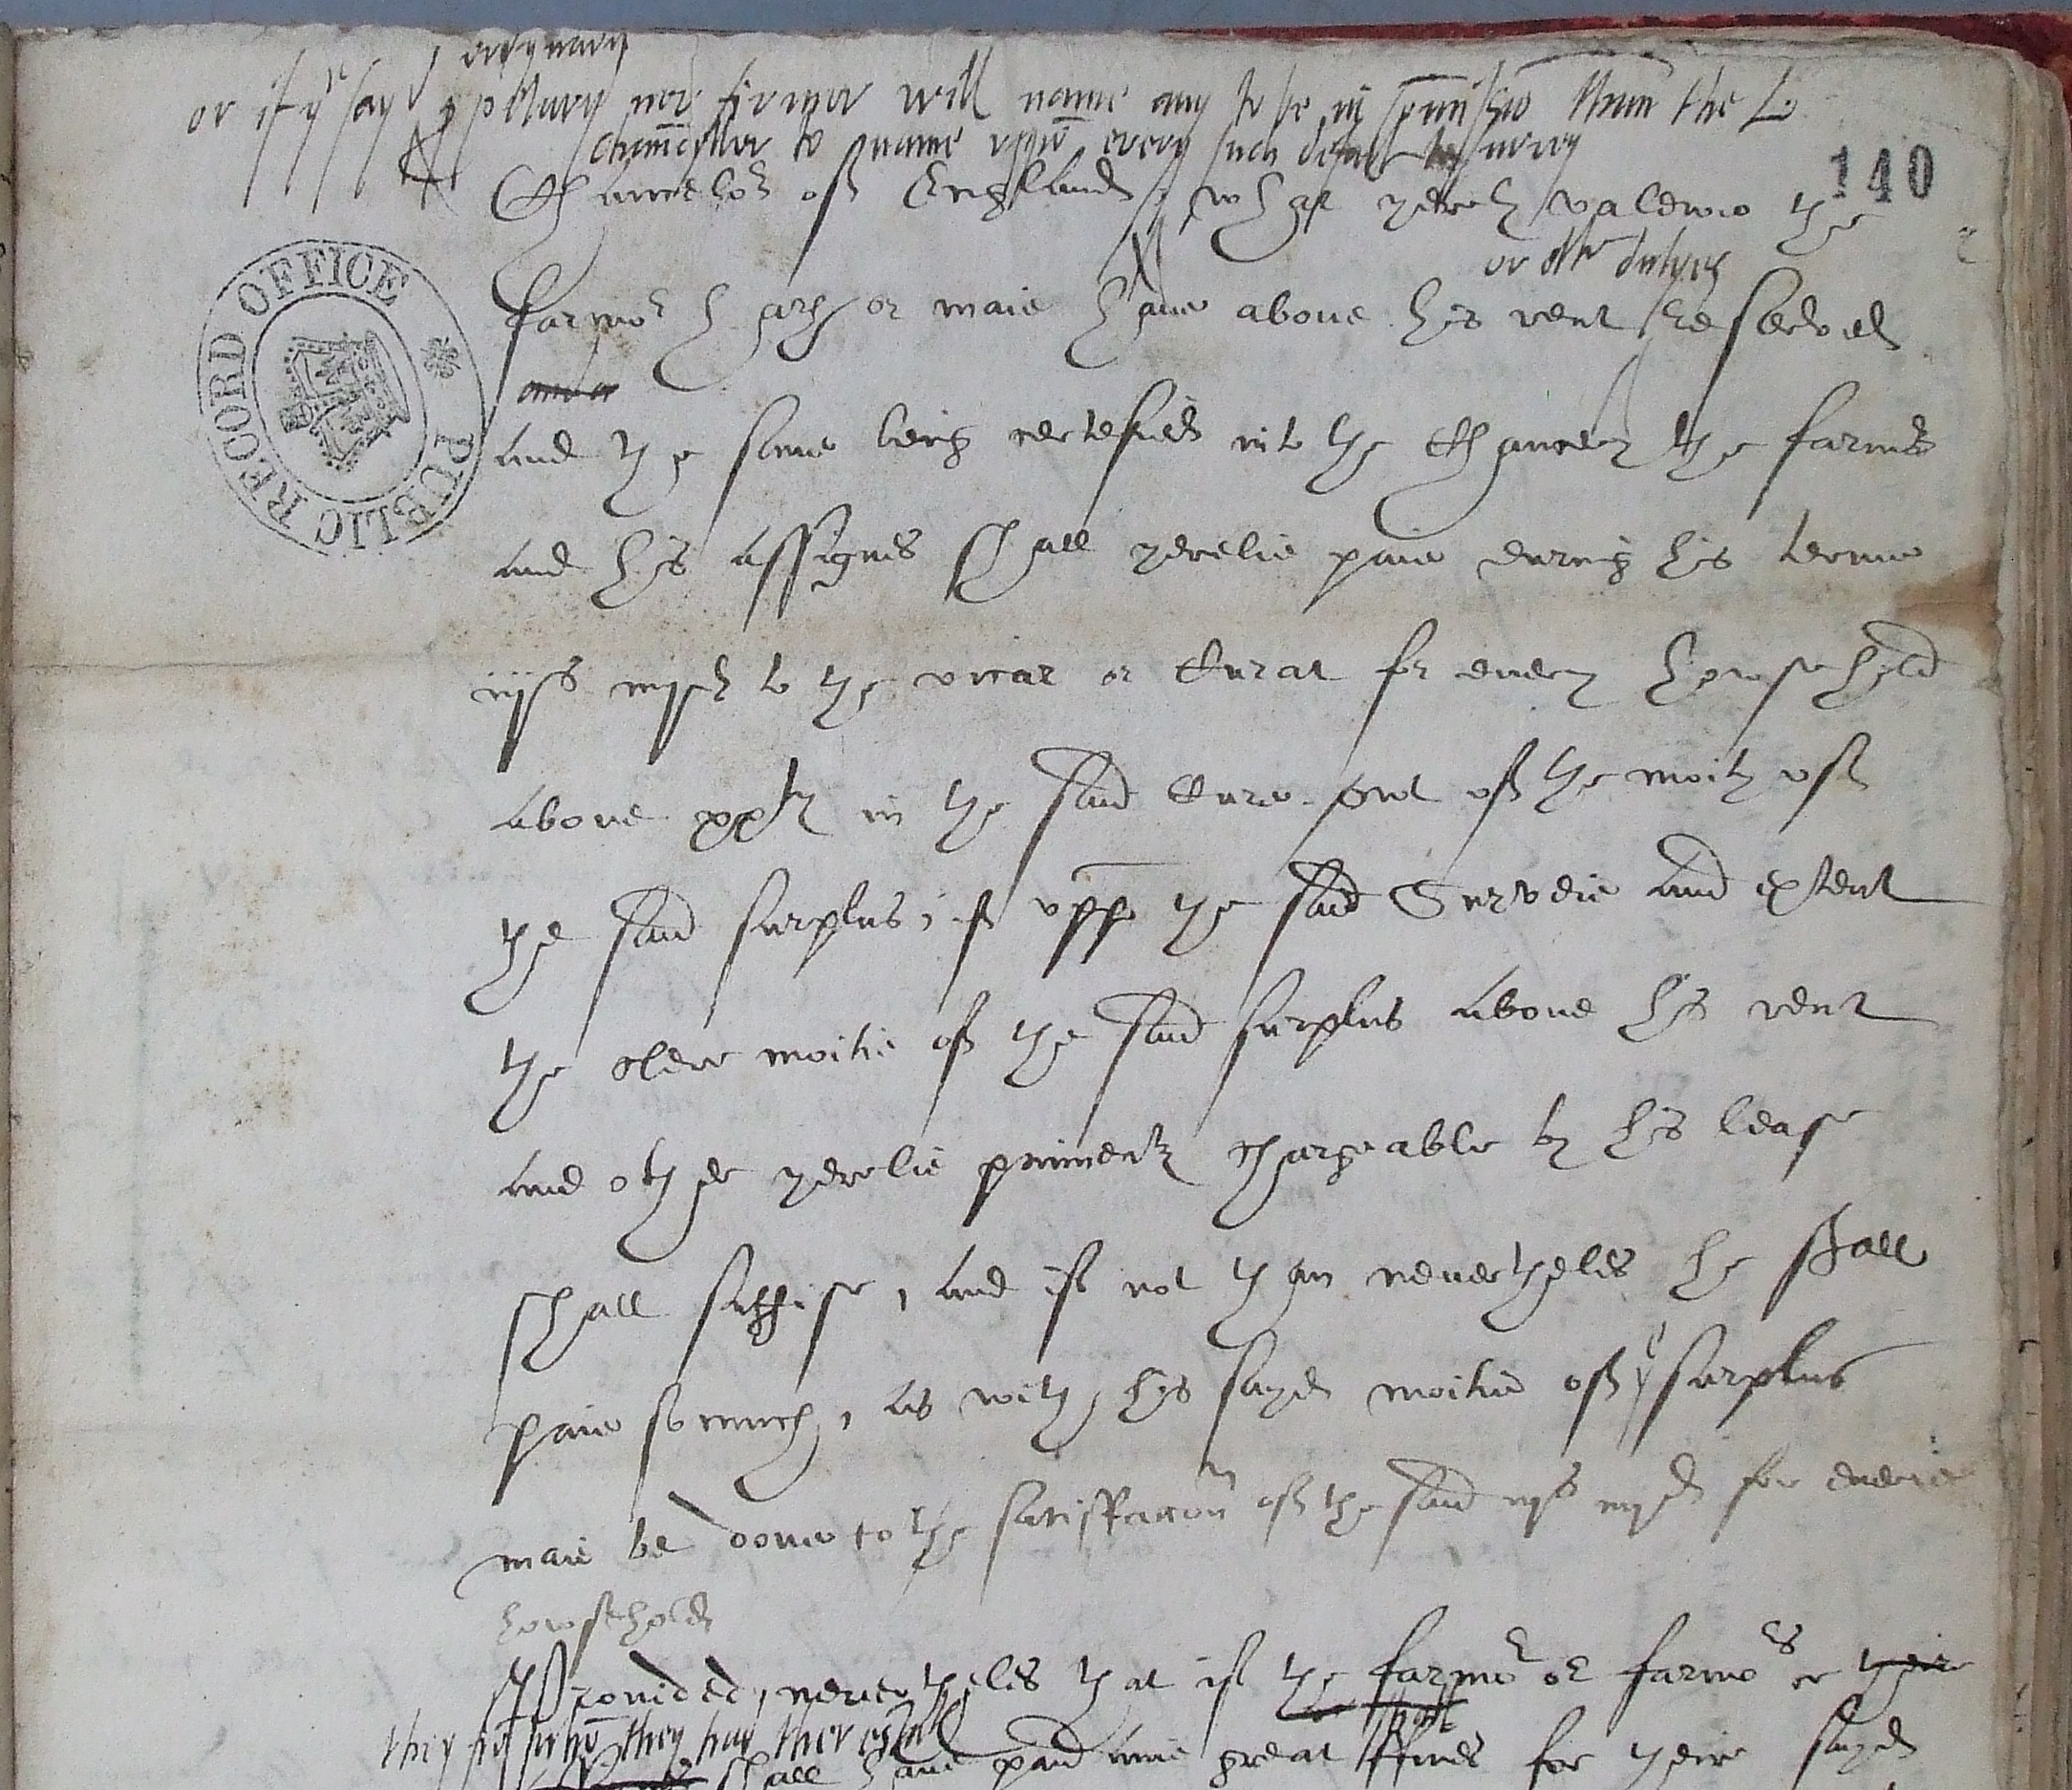 ordynary
or if ye say propietary nor firmor will name any to be in commissio than the L.
chauncyllor to name uppon every such defaut to survey
140
Chauncelor off England, what yerely valewe the
or other dutyes
farmor hath or maie have above his rent reserved
and the same being certefied into the Chancery the farmer
and his assignes shall yerelie paie during his terme
iijs iiijd to the vicar or Curat for every howsehold
above xxty in the said Cure owt off the moity off
the said surplus, if uppo the said Surveie and extent
the clere moitie off the said surplus above his rent
and other yerelie paiments chargeable by his lease
shall suffise, and iff not than nevertheles he shall
paie so much, as with his sayd moitie off ye surplus
maie be donne to the satisffaccon off the said iijs iiijd for everie
howsehold
Provided, nevertheles that iff the farmor or farmors or their
they fro whō they hav ther estatt
shall have paid anie great ffines for their sayd
PUBLIC RECORD OFFICE